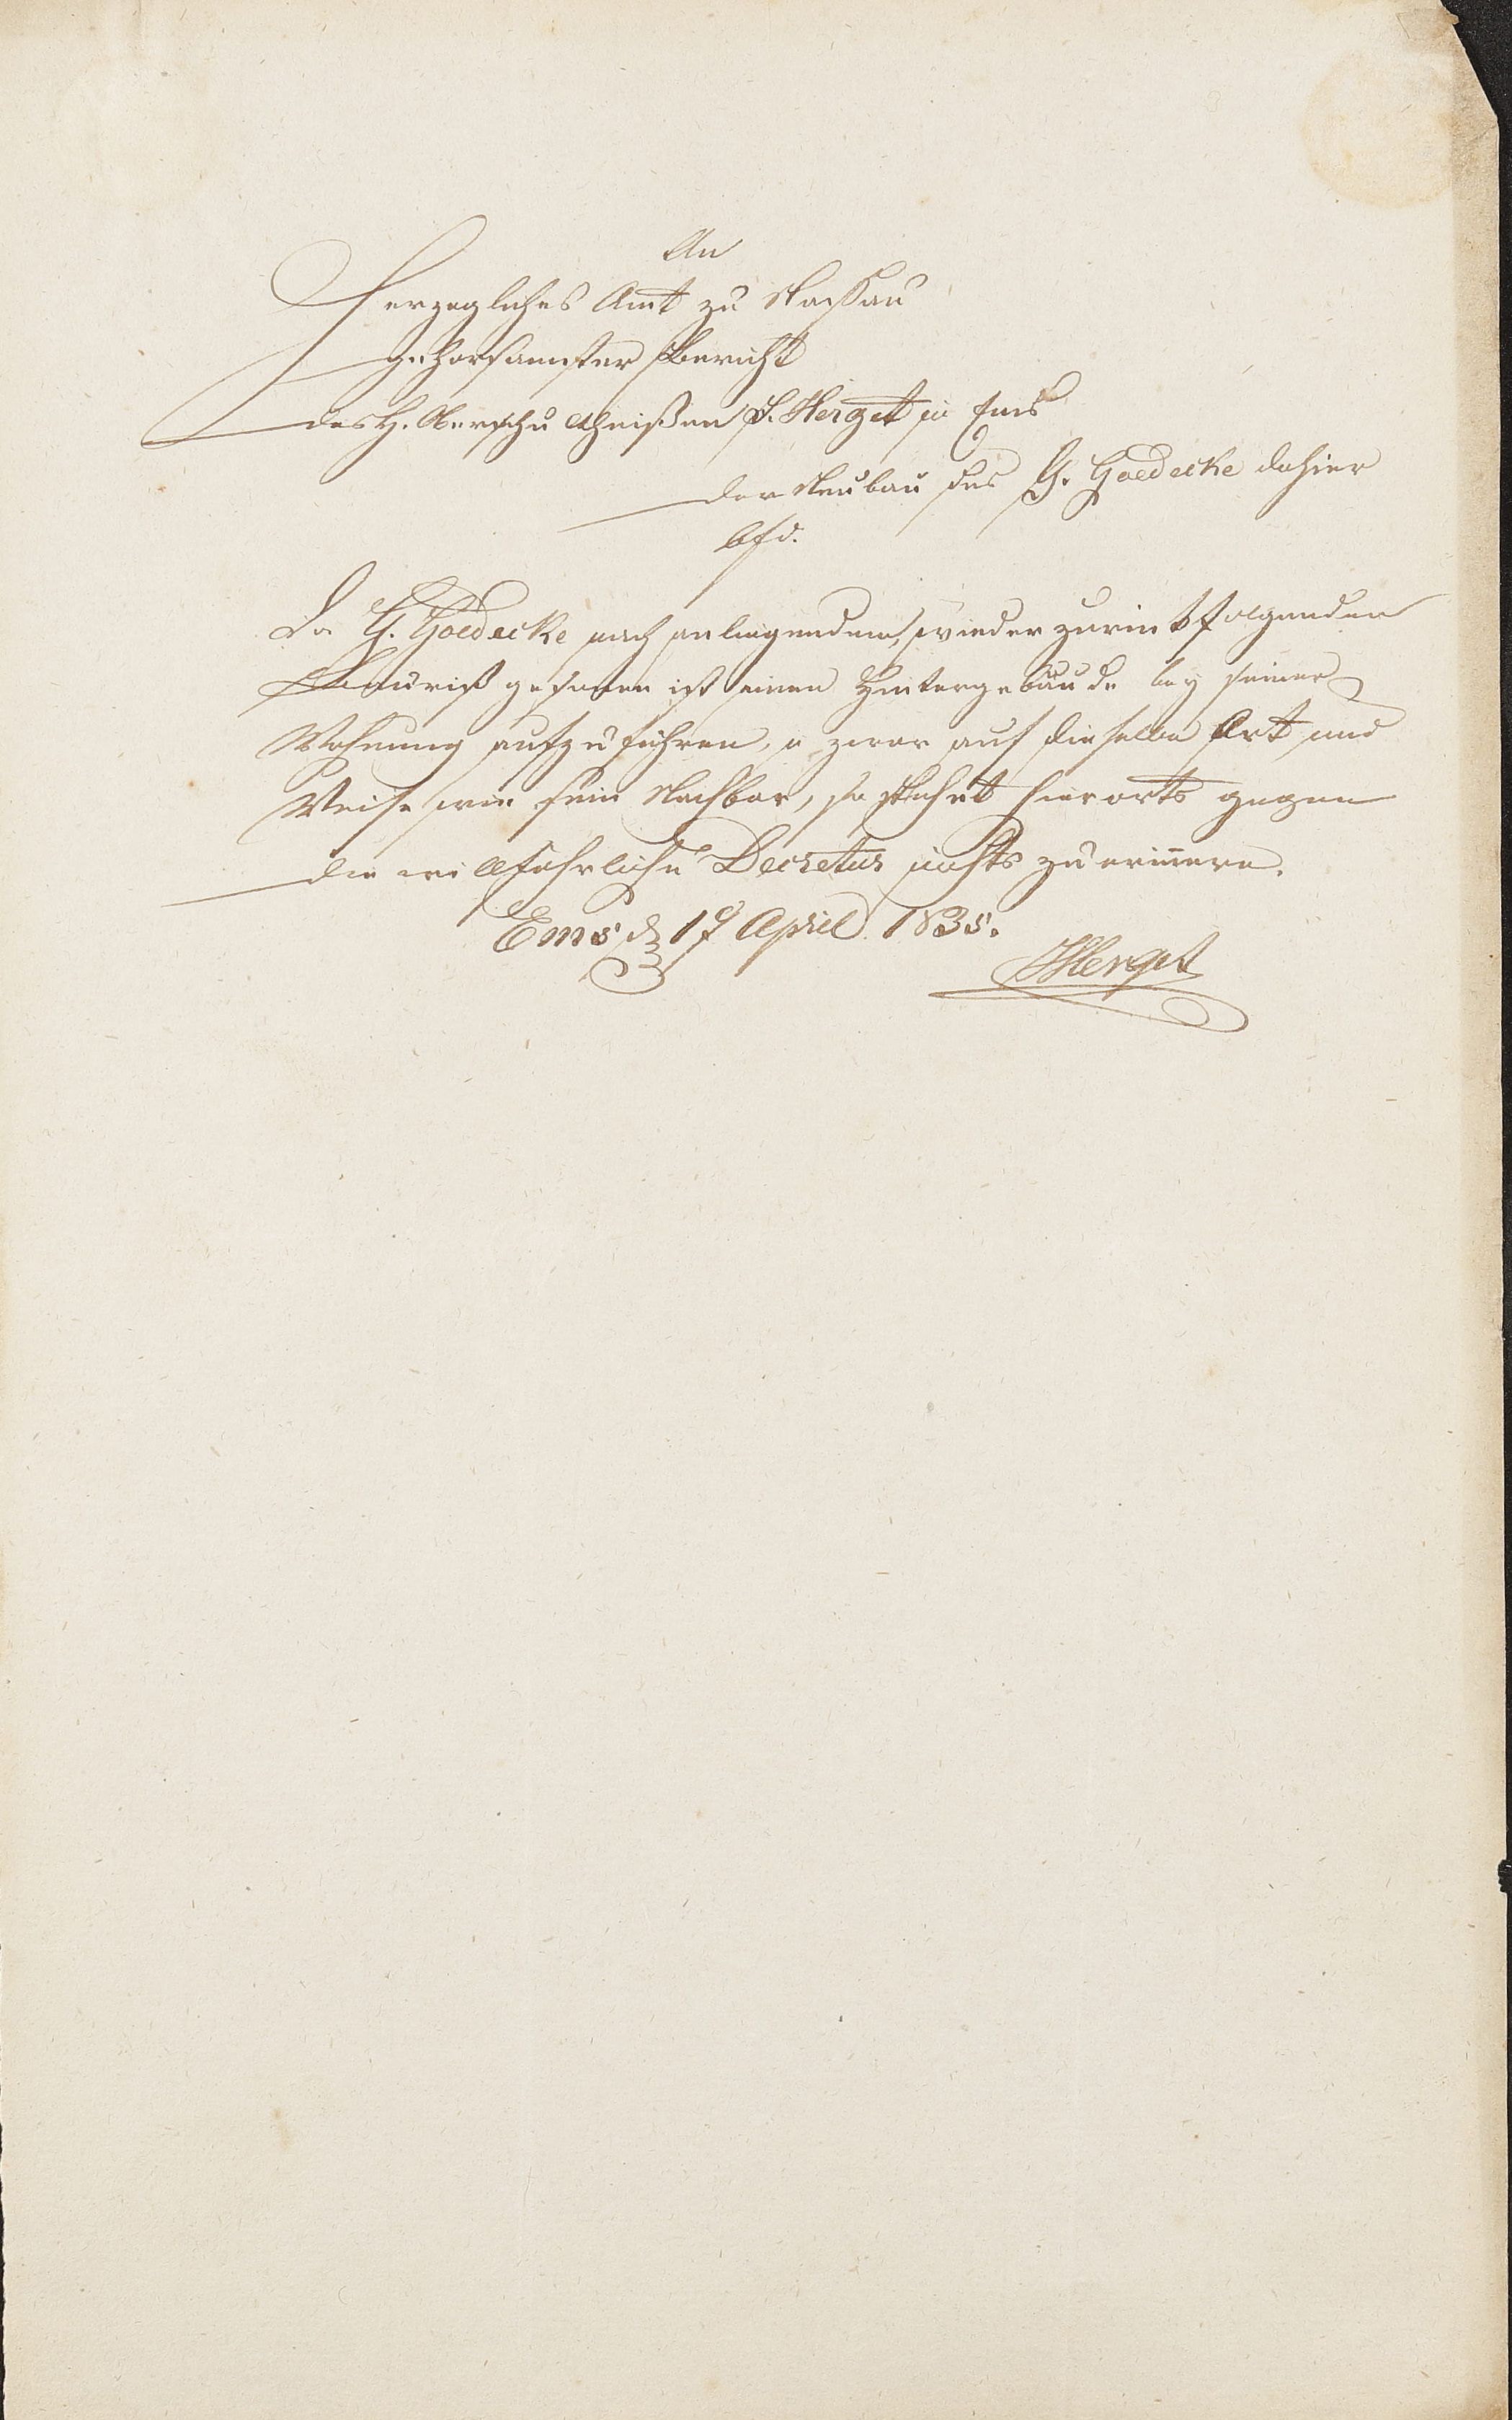 An
Herzogliches Amt zu Nassau
gehorsamster Bericht
des H. Oberschultheißen J. Herget in Ems
der Neubau des G. Goedecke dahier
btfd.
Da G. Goedecke nach anliegendem, wieder zurückfolgenden
Bauriß gesonnen ist einen Hintergebäude bey seiner
Wohnung aufzuführen, u. zwar auf dieselbe Art und
Weise wie sein Nachbar, so stehet hierorts gegen
die willfährliche Decretur nichts zu erinnern.
Ems d 17 April 1835.
JHerget